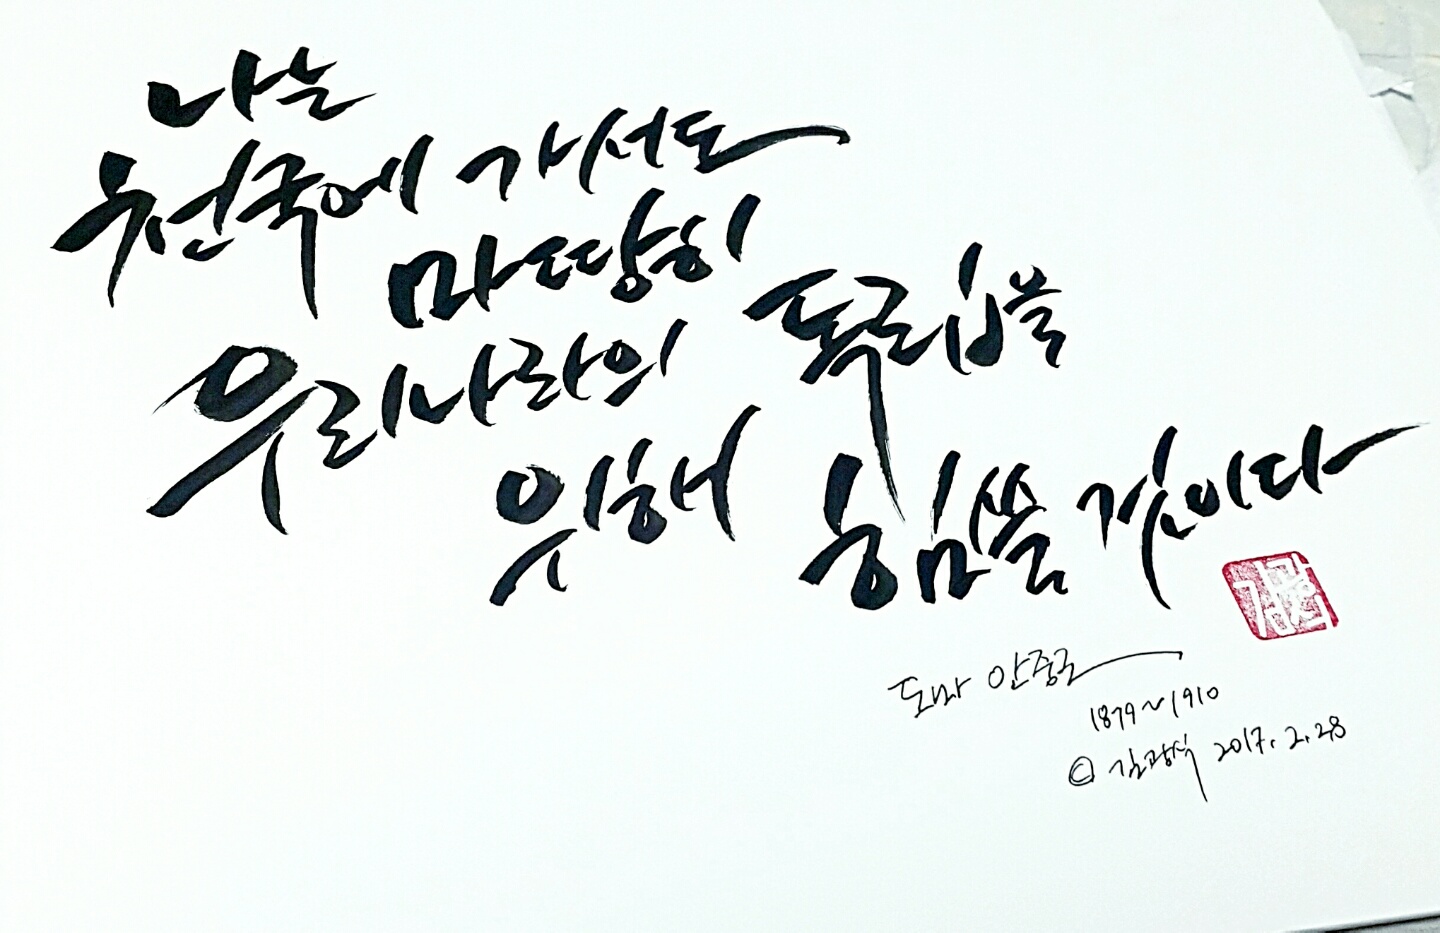 나는
천국에 가서도
마땅히
우리나라의 독립을
위해 힘쓸 것이다
도마 안중근
1879~1910
© 김광석 2017. 2. 28